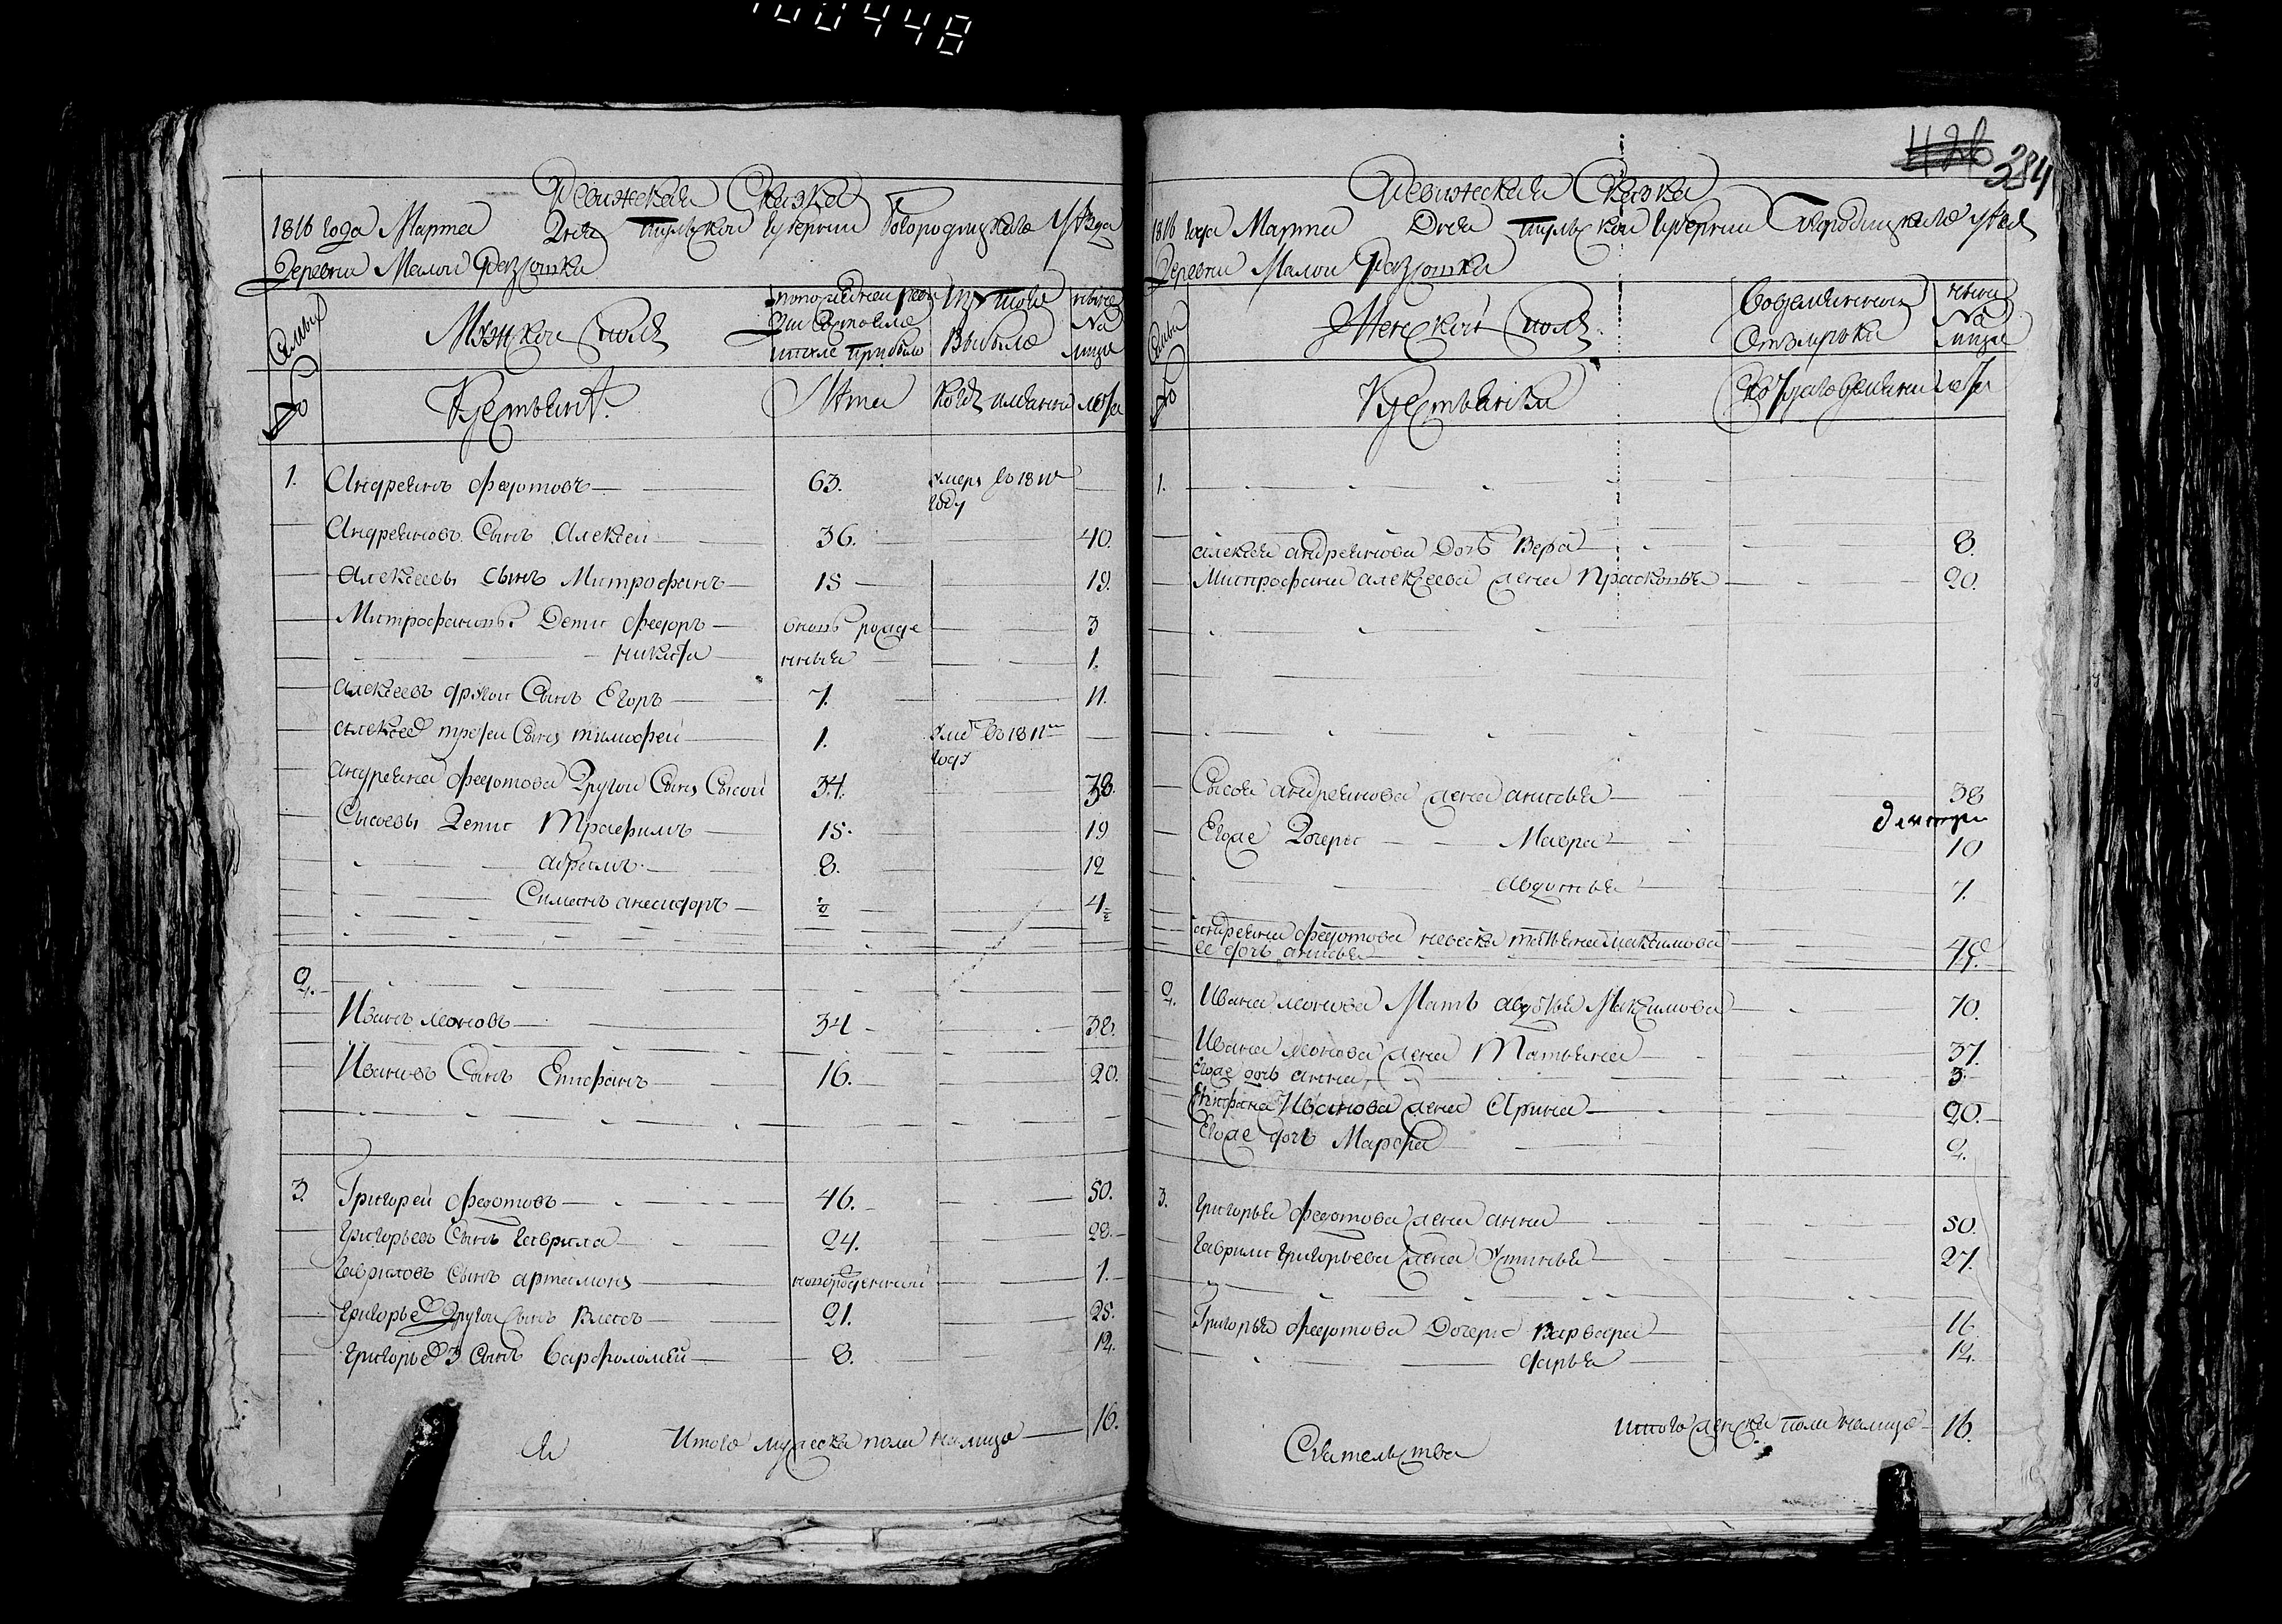 100448
Ревижская Скаска
1816 года Марта Дня тульской губернии Богородицкаго уезда
Деревни Малой
Семьи
Мужской полъ
по последней реви
зии состояло
и после прибыло
Из того
Выбыло
ныне
На
лице
№
Крестьяня
Лета
Когда имянно
лета
1. Андреянъ Федотовъ 63. умеръ въ 181
году
Андреяновъ Сынъ Алексей 36. 40.
Алексеевы сынъ Митрофанъ 15 19.
Митрофановы Дети Федоръ вновь рожде 3
Никита нныя 1.
Алексеевъ другой Сынъ Егоръ 7. 11.
Алексеев третей Сынъ тимофей 1. умре въ 1811м
году
Андреяна Федотова Другой Сынъ Сысой 34. 38.
Сысоевы Дети Трафимъ 15. 19
абрамъ 8. 12
Симеонъ анесифоръ 4
2.
Иванъ леоновъ 34 38.
Ивановъ Сынъ Епифанъ 16. 20.
3. Григорей Федотовъ 46. 50.
Григорьевъ Сынъ Гаврила 24. 28.
Гавриловъ Сынъ артамонъ новорожденной 1.
Григорьев Другой Сынъ Власъ 21. 25.
Григорьев 3 Сынъ Варфоломей 8. 12.
Итого мужеска пола налицо 16.
426 384
Ревижская Скаска
1816 года Марта Дня тульской губернии Богородицкаго уезда
Деревни Малой
Семьи
Женской полъ
Во временной
Отлучке
ныне
На
лице
№
Крестьянки
лета
1.
алексея андреянова Дочь Вера 8.
Митрофана алексеева жена Прасковья 20.
Сысоя андреянова жена анисья 38
Ево же Дочери Мавра 10
авдотья 7.
андреяна Федотова невеска татьяна максимова
ее дочь анисья
2. Ивана леонова Мать авдотья Максимова 70.
Ивана леонова жена Татьяна 37.
Ево же дочь анна 3.
Епифана Иванова жена Арина 20.
Ево же дочь Марфа 2.
3. григорья Федотова жена анна 50.
гаврилы григорьева жена Устинья 27.
Григорья Федотова Дочери Варвара 16.
дарья 12.
итого женска пола налицо 16.